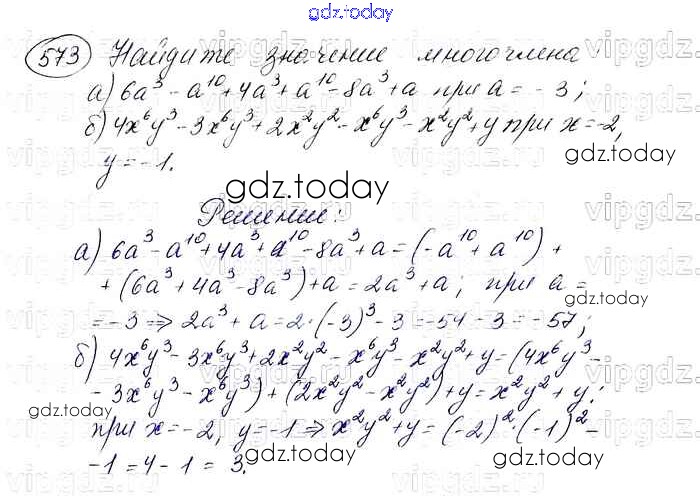 gdz.today
573 Найдите значение многочлена:
а) 6a³ - a¹⁰ + 4a³ + a¹⁰ - 8a³ + a при a = -3;
б) 4x⁶y³ - 3x⁶y³ + 2x²y² - x⁶y³ - x²y² + y при x = -2,
y = -1.
gdz.today
Решение:
а) 6a³ - a¹⁰ + 4a³ + a¹⁰ - 8a³ + a = (-a¹⁰ + a¹⁰) +
+ (6a³ + 4a³ - 8a³) + a = 2a³ + a; при a =
gdz.today
= -3 ⇒ 2a³ + a = 2·(-3)³ - 3 = -54 - 3 = -57;
б) 4x⁶y³ - 3x⁶y³ + 2x²y² - x⁶y³ - x²y² + y = (4x⁶y³ -
- 3x⁶y³ - x⁶y³) + (2x²y² - x²y²) + y = x²y² + y;
gdz.today
при x = -2, y = -1 ⇒ x²y² + y = (-2)²·(-1)² -
- 1 = 4 - 1 = 3.
gdz.today